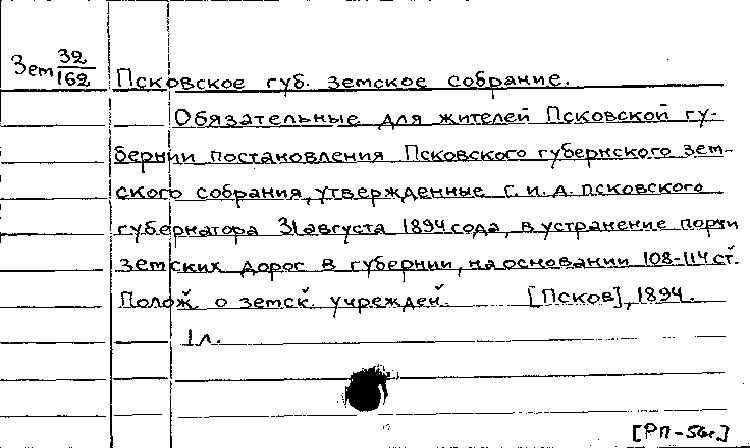 Зем 32/162 Псковское губ. земское собрание.
Обязательные для жителей Псковской гу-
бернии постановления Псковского губернского зем-
ского собрания, утвержденные г. и. д. псковского
губернатора 31 августа 1894 года, в устранение порчи
земских дорог в губернии, на основании 108-114 ст.
Полож. о земск. учрежден. [Псков], 1894.
1 л.
[РП-56г.]